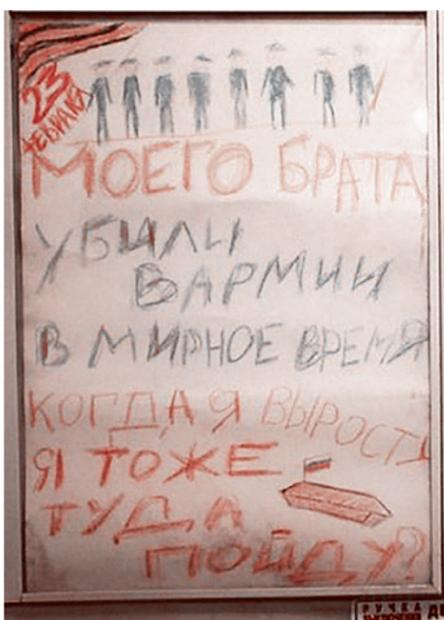 23
ФЕВРАЛЯ
МОЕГО БРАТА
УБИЛИ
В АРМИИ
В МИРНОЕ ВРЕМЯ
КОГДА Я ВЫРОСТУ
Я ТОЖЕ
ТУДА
ПОЙДУ?
РУЧКА